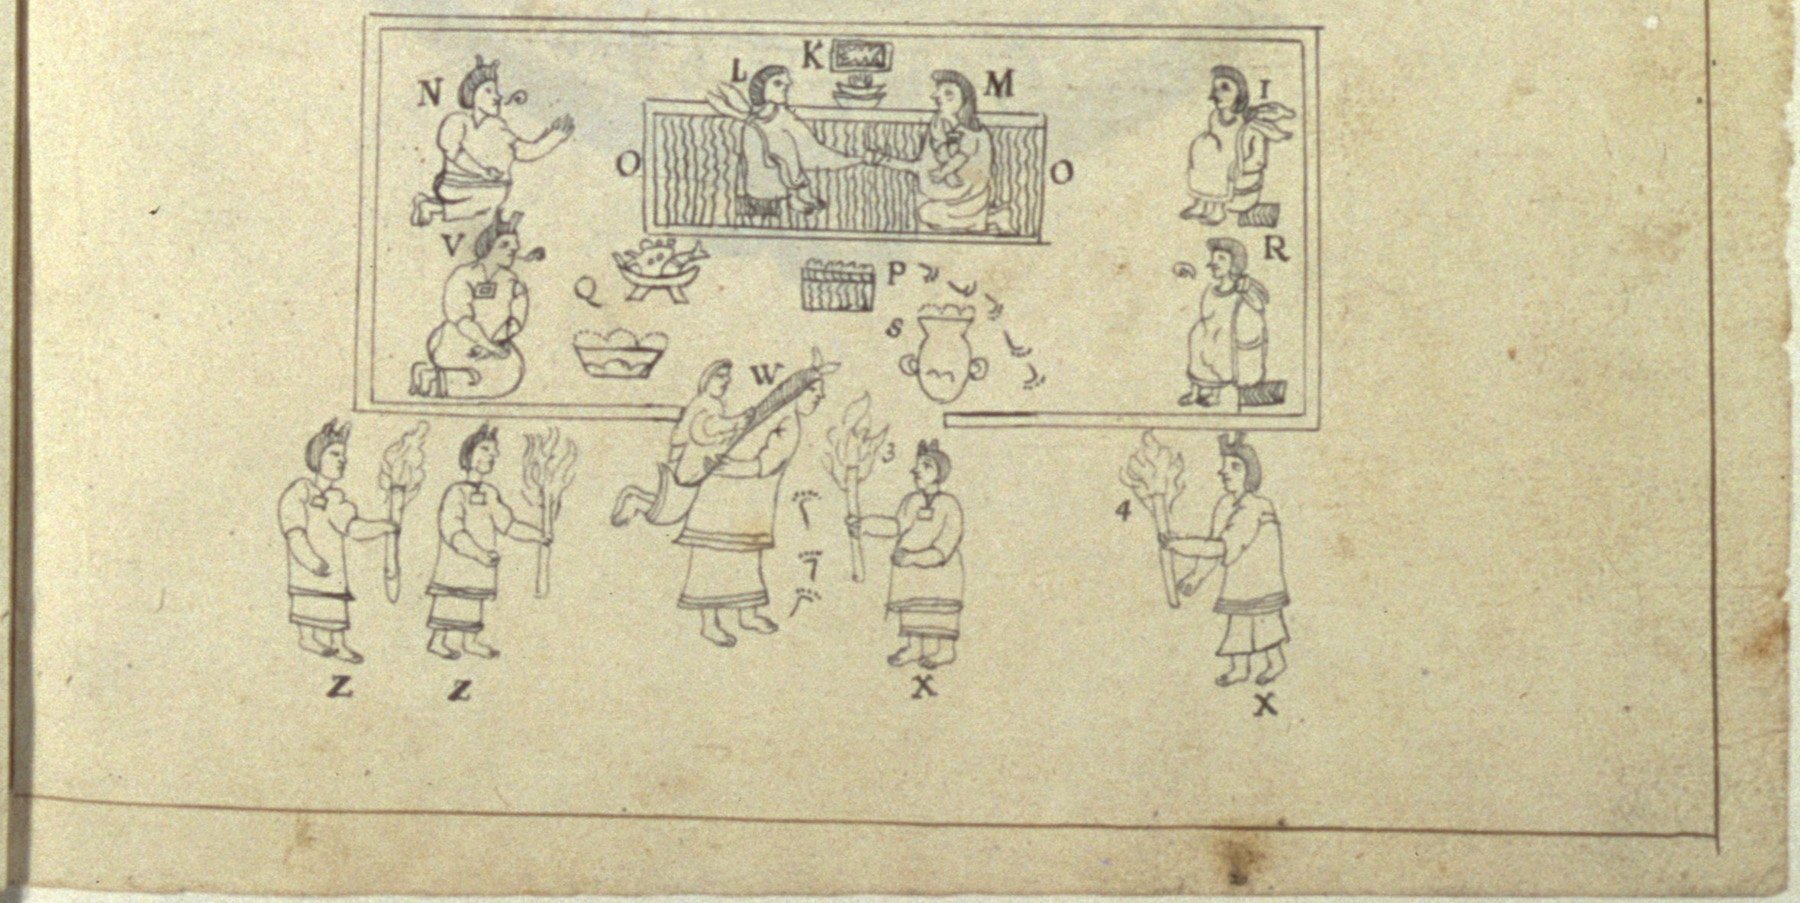 K
L M
N I
O O
V R
P
Q
S
W
3
4
Z Z X X